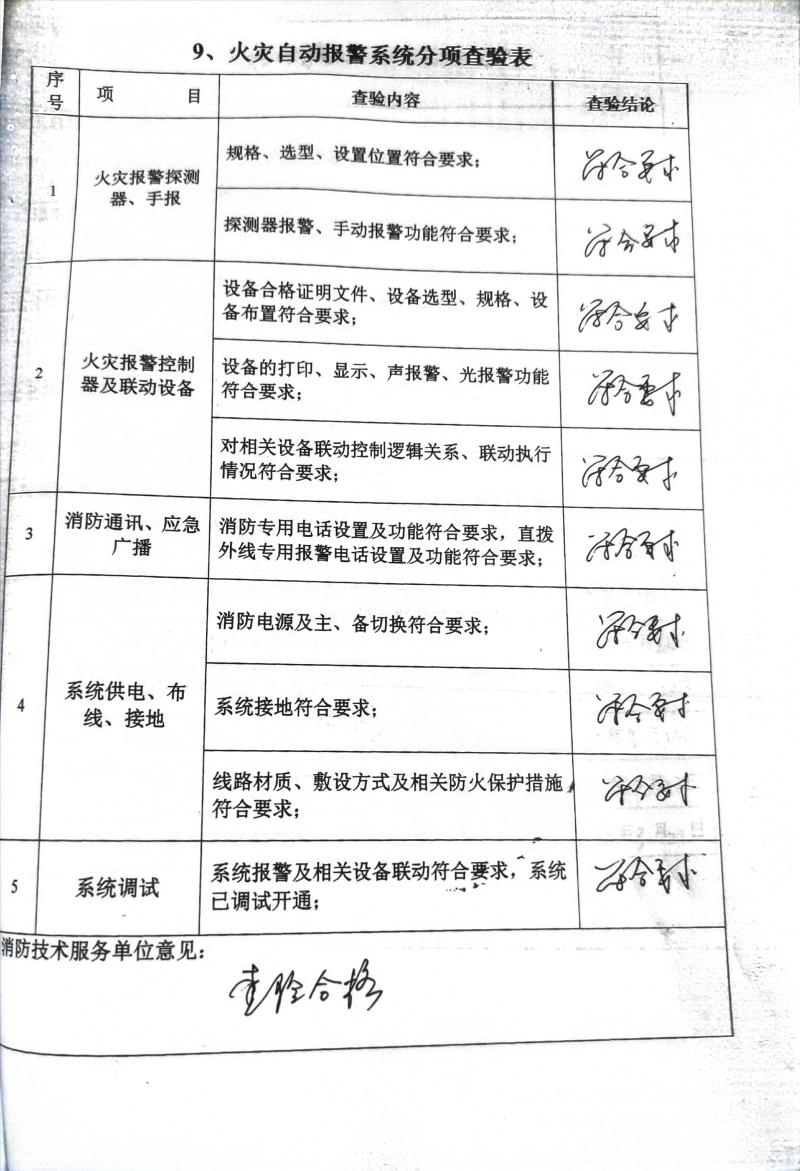 9、火灾自动报警系统分项查验表
序号
项 目
查验内容
查验结论
1
火灾报警探测
器、手报
规格、选型、设置位置符合要求；
符合要求
探测器报警、手动报警功能符合要求；
符合要求
2
火灾报警控制
器及联动设备
设备合格证明文件、设备选型、规格、设
备布置符合要求；
符合要求
设备的打印、显示、声报警、光报警功能
符合要求；
符合要求
对相关设备联动控制逻辑关系、联动执行
情况符合要求；
符合要求
3
消防通讯、应急
广播
消防专用电话设置及功能符合要求，直拨
外线专用报警电话设置及功能符合要求；
符合要求
4
系统供电、布
线、接地
消防电源及主、备切换符合要求；
符合要求
系统接地符合要求；
符合要求
线路材质、敷设方式及相关防火保护措施
符合要求；
符合要求
5
系统调试
系统报警及相关设备联动符合要求，系统
已调试开通；
符合要求
消防技术服务单位意见：
查验合格